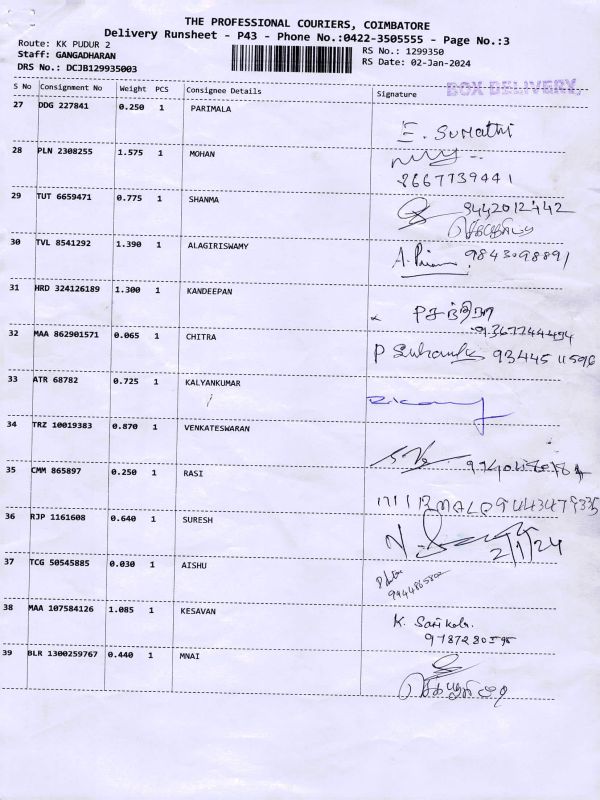 THE PROFESSIONAL COURIERS, COIMBATORE
Delivery Runsheet - P43 - Phone No.:0422-3505555 - Page No.:3
Route: KK PUDUR 2 RS No.: 1299350
Staff: GANGADHARAN RS Date: 02-Jan-2024
DRS No.: DCJB129935003
BOX DELIVERY
S No Consignment No Weight PCS Consignee Details Signature
27 DDG 227841 0.250 1 PARIMALA
E. Sumathi
28 PLN 2308255 1.575 1 MOHAN
8667739441
29 TUT 6659471 0.775 1 SHANMA
9442012442
30 TVL 8541292 1.390 1 ALAGIRISWAMY
9843098891
31 HRD 324126189 1.300 1 KANDEEPAN
32 MAA 862901571 0.065 1 CHITRA
33 ATR 68782 0.725 1 KALYANKUMAR
34 TRZ 10019383 0.870 1 VENKATESWARAN
35 CMM 865897 0.250 1 RASI
36 RJP 1161608 0.640 1 SURESH
2/1/24
37 TCG 50545885 0.030 1 AISHU
38 MAA 107584126 1.085 1 KESAVAN
39 BLR 1300259767 0.440 1 MNAI